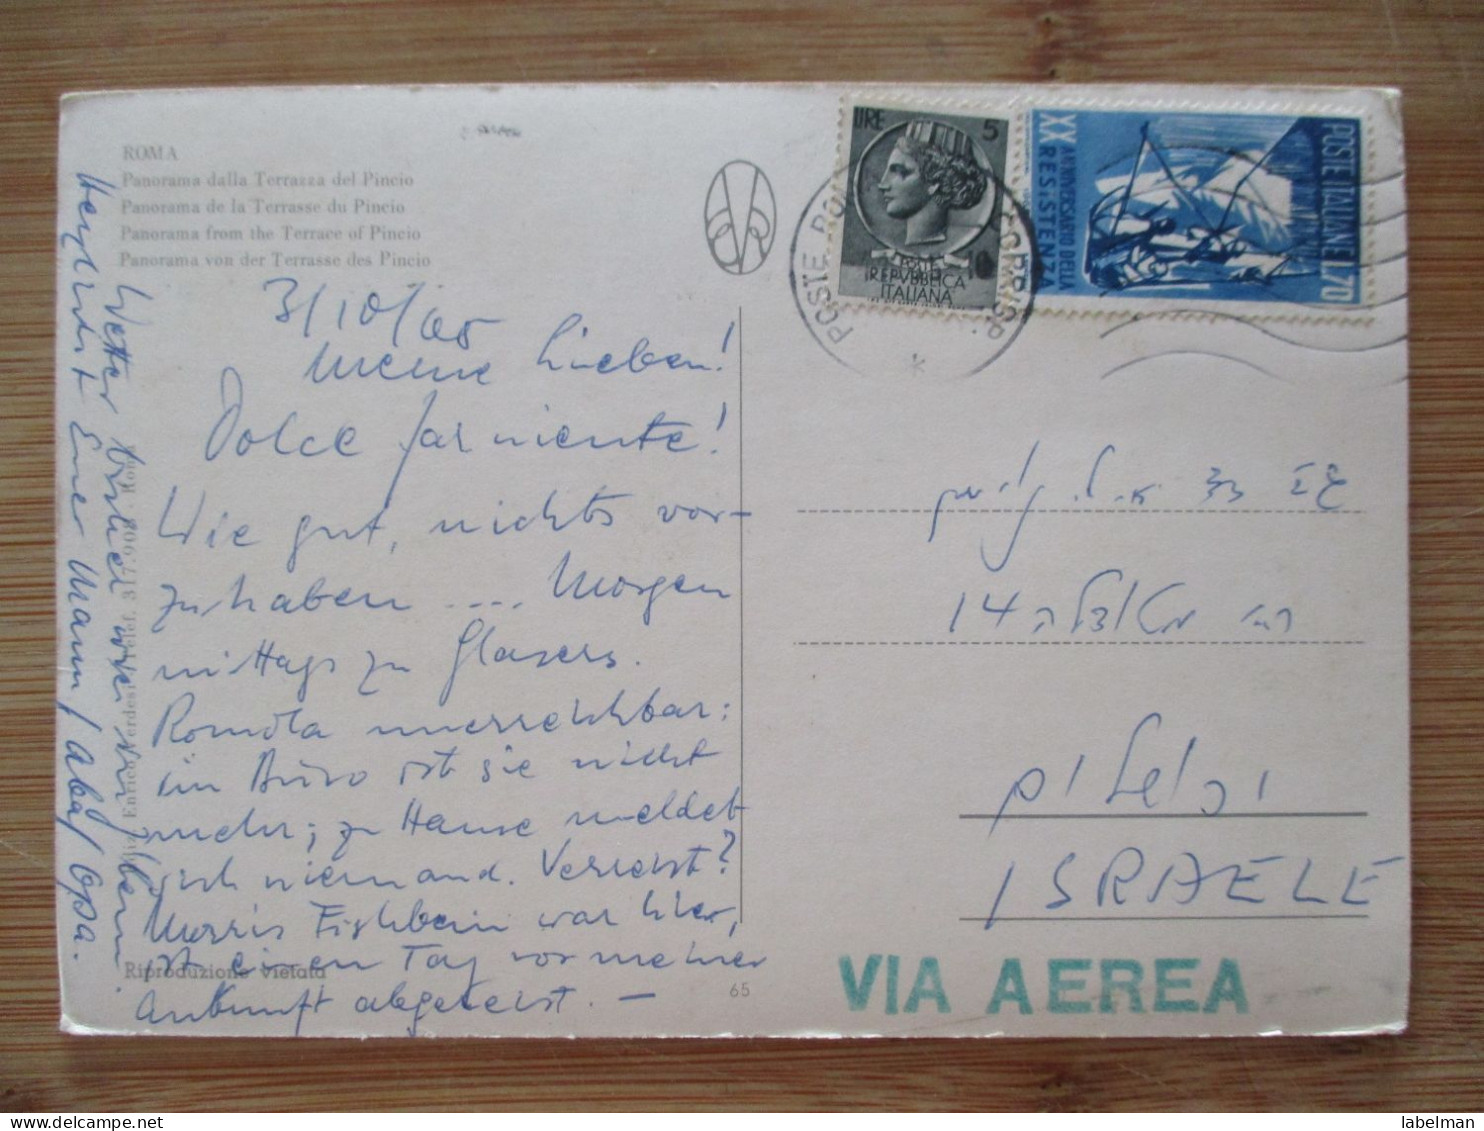 ROMA
Panorama dalla Terrazza del Pincio
Panorama de la Terrasse du Pincio
Panorama from the Terrace of Pincio
Panorama von der Terrasse des Pincio
3/10/65
Meine Lieben!
Dolce far niente!
Wie gut, nichts vor-
zuhaben .... Morgen
mittags zu Glasers.
Romola unerreichbar:
im Büro ist sie nicht
mehr; zu Hause meldet
sich niemand. Verreist?
Morris Fishbein war hier,
ist einen Tag vor meiner
Ankunft abgereist. —
Wetter wie im
Herzlichst Euer Mann/Aba/Opa.
Enrico Verdesi Telef. 317.908 - Roma
Riproduzione vietata
65
LIRE 5
REPUBBLICA
ITALIANA
POSTE ITALIANE L.70
XX ANNIVERSARIO DELLA
RESISTENZA
POSTE ROMA
14
ירושלים
ISRAELE
VIA AEREA
labelman